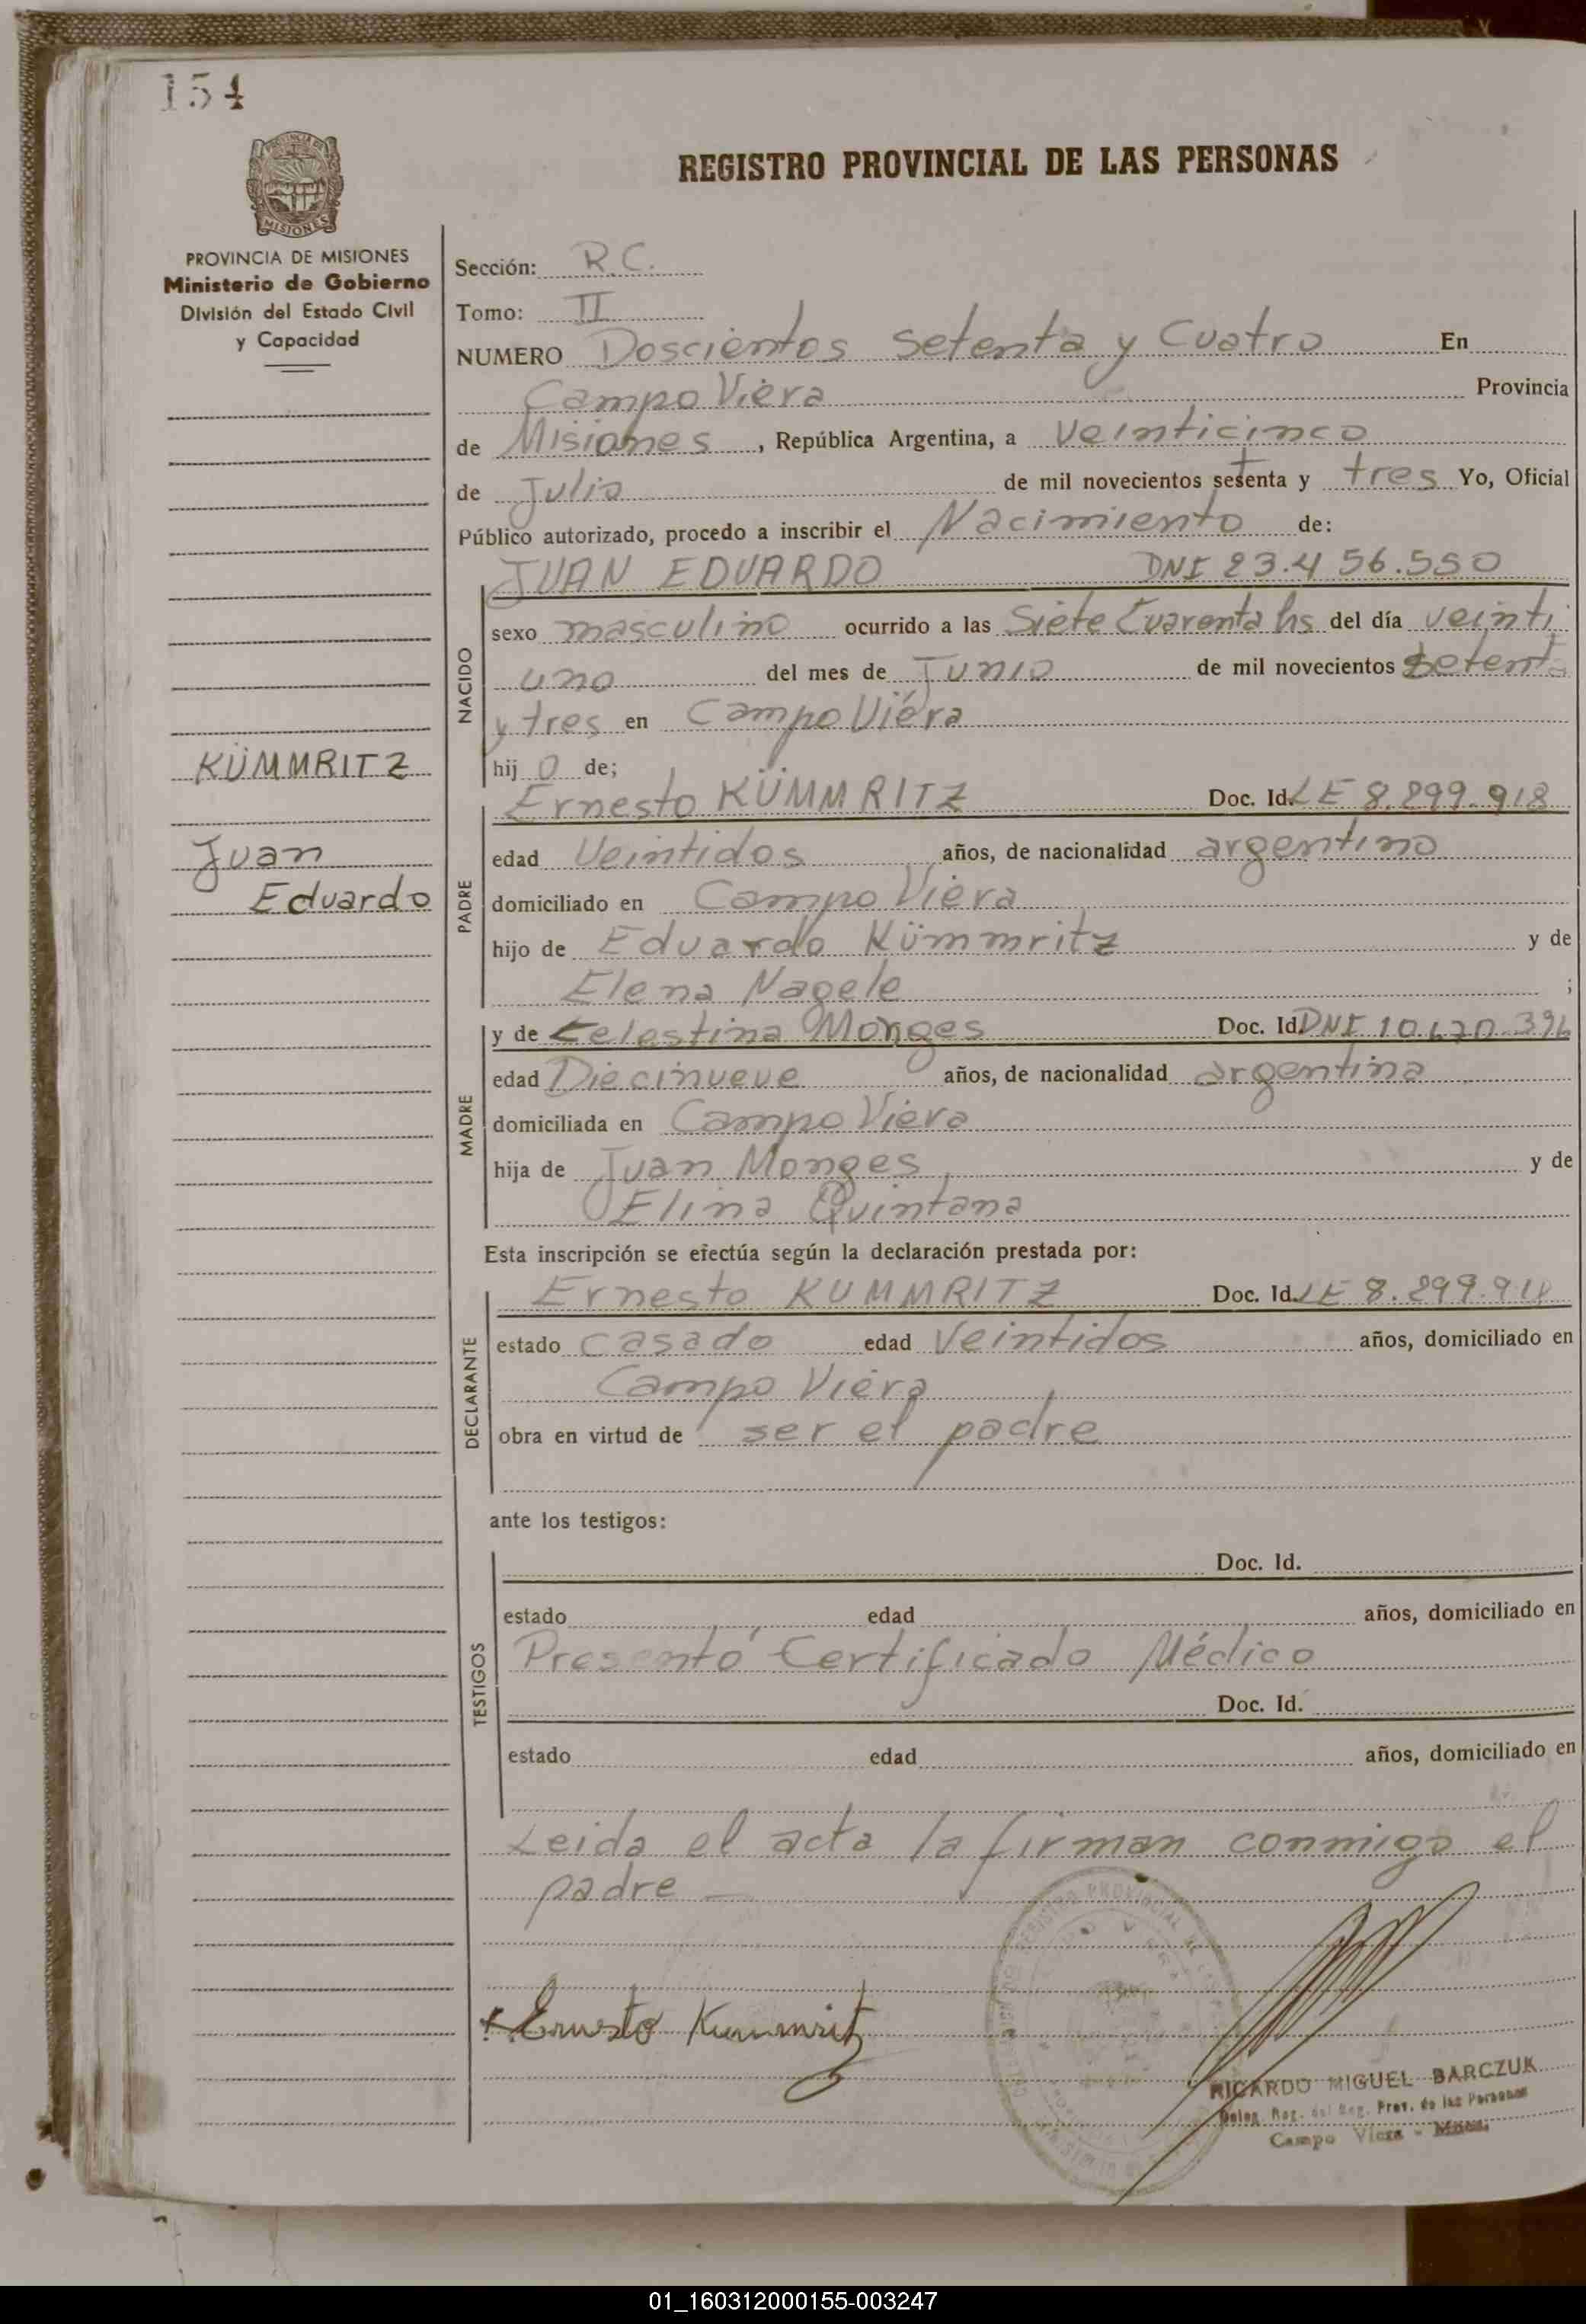 154
REGISTRO PROVINCIAL DE LAS PERSONAS
PROVINCIA DE MISIONES
Ministerio de Gobierno
División del Estado Civil
y Capacidad
KÜMMRITZ
Juan
Eduardo
Sección: R.C.
Tomo: II
NUMERO Doscientos setenta y Cuatro En
Campo Viera Provincia
de Misiones, República Argentina, a veinticinco
de Julio de mil novecientos setenta y tres Yo, Oficial
Público autorizado, procedo a inscribir el Nacimiento de:
JUAN EDUARDO DNI 23.456.550
NACIDO
sexo masculino ocurrido a las Siete Cuarenta hs del día veinti
uno del mes de Junio de mil novecientos setenta
y tres en Campo Viéra
hijo de;
PADRE
Ernesto KÜMMRITZ Doc. Id. LE 8.299.918
edad Veintidos años, de nacionalidad argentino
domiciliado en Campo Viera
hijo de Eduardo Kümmritz y de
Elena Nagele ;
MADRE
y de Celestina Monges Doc. Id. DNI
edad Diecinueve años, de nacionalidad argentina
domiciliada en Campo Viera
hija de Juan Monges y de
Elina Quintana
Esta inscripción se efectúa según la declaración prestada por:
DECLARANTE
Ernesto KUMMRITZ Doc. Id. LE
estado casado edad Veintidos años, domiciliado en
Campo Viera
obra en virtud de ser el padre
ante los testigos:
TESTIGOS
Doc. Id.
estado edad años, domiciliado en
Presentó Certificado Médico
Doc. Id.
estado edad años, domiciliado en
Leida el acta la firman conmigo el
padre —
Ernesto Kummritz
RICARDO MIGUEL BARCZUK
Deleg. Reg. del Reg. Prov. de las Personas
Campo Viera - Mnes.
01_160312000155-003247